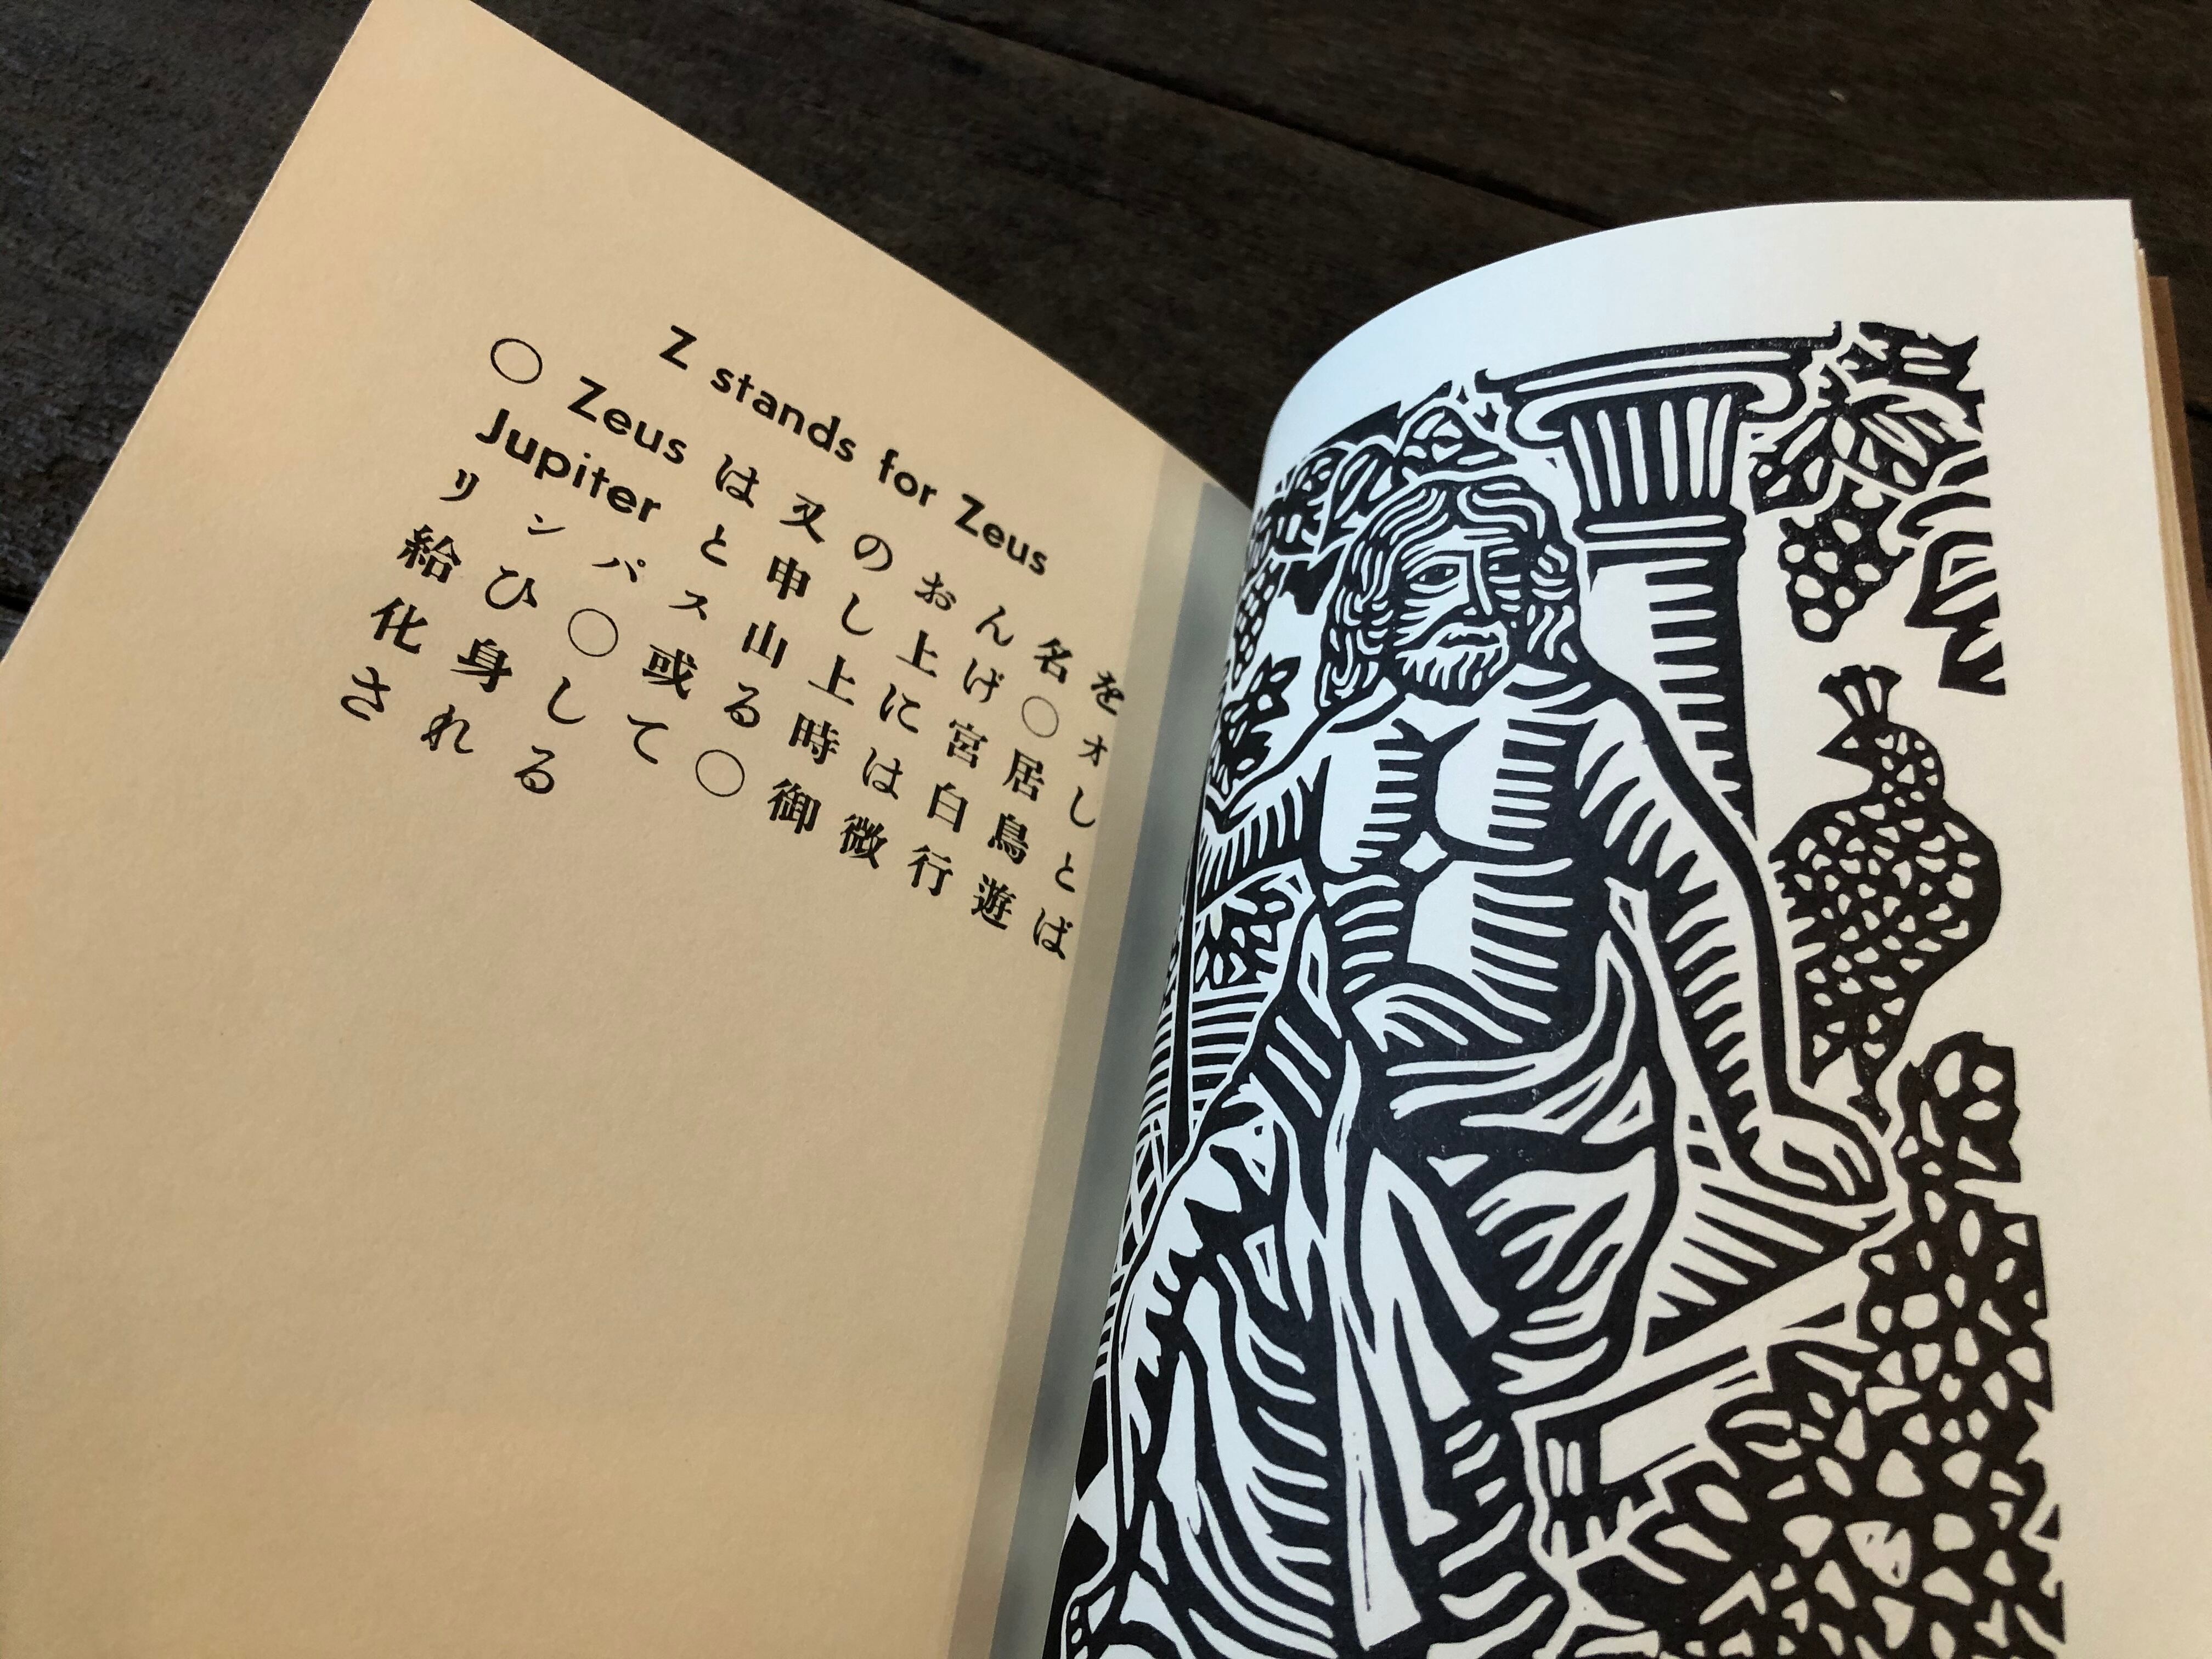 Z stands for Zeus
○ Zeus は又のおん名を
Jupiter と申し上げ○オ
リンパス山上に宮居し
給ひ○或る時は白鳥と
化身して○御微行遊ば
される